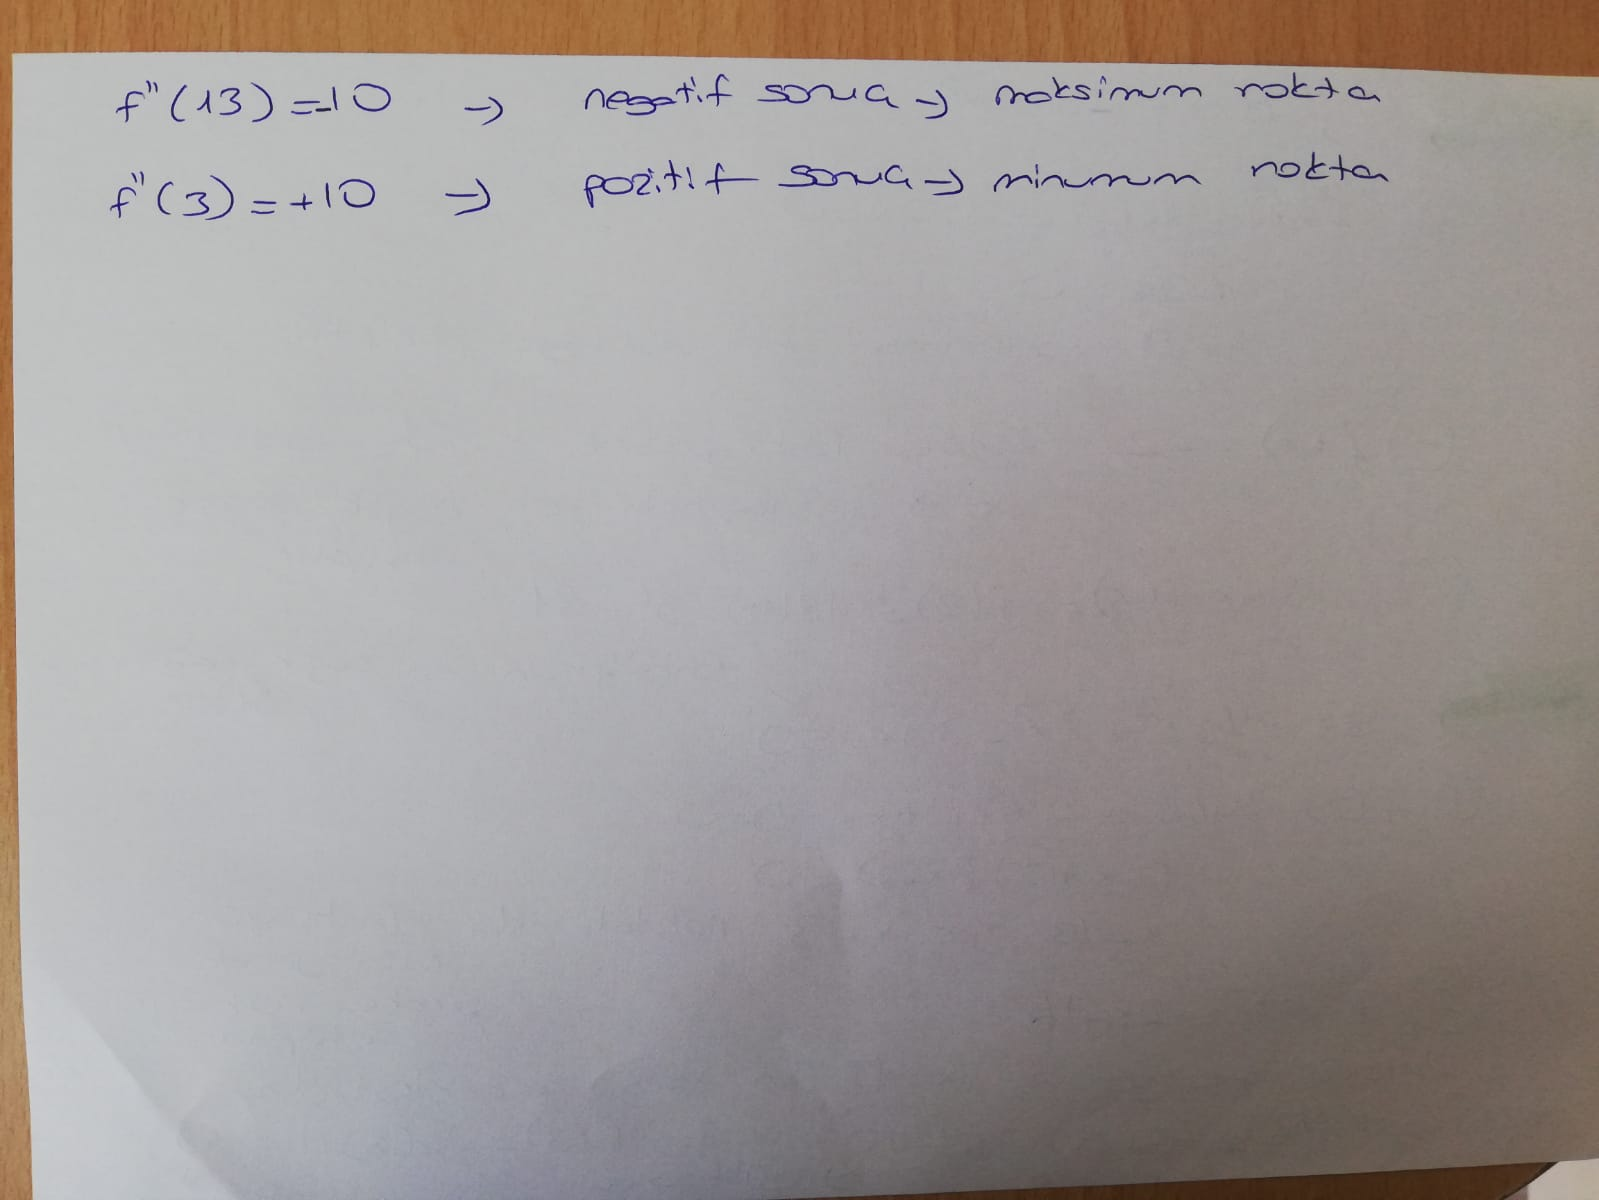 f"(13) = -10 → negatif sonuç → maksimum nokta
f"(3) = +10 → pozitif sonuç → minumum nokta